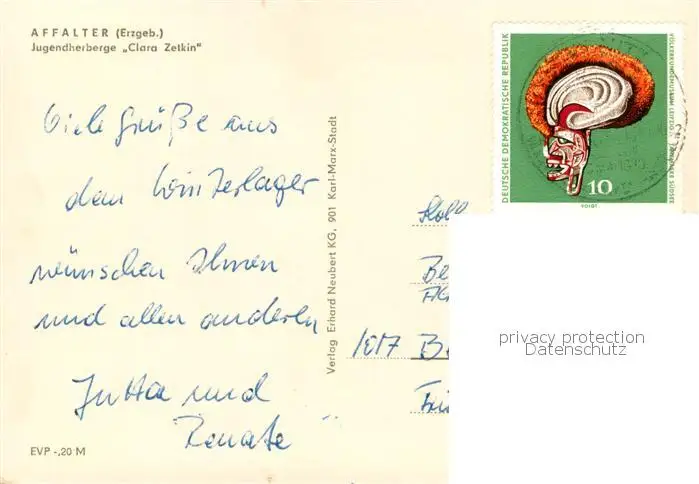 AFFALTER (Erzgeb.)
Jugendherberge „Clara Zetkin“
Viele Grüße aus
dem Winterlager
wünschen Ihnen
und allen anderen
Jutta und
Renate
EVP -,20 M
Verlag Erhard Neubert KG, 901 Karl-Marx-Stadt
DEUTSCHE DEMOKRATISCHE REPUBLIK
VÖLKERKUNDEMUSEUM LEIPZIG
10
VOIGT
1017 B
privacy protection
Datenschutz